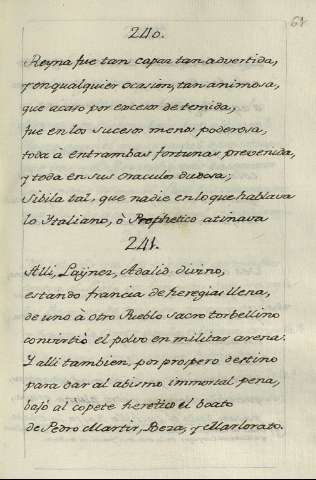 68
240.
Reyna fue tan capaz tan advertida,
y en qualquier ocasion, tan animosa,
que acaso por exceso de temida,
fue en los sucesos menos poderosa,
toda à entrambas fortunas prevenida,
y toda en sus oraculos dudosa;
Sibila tal, que nadie en lo que hablava
lo Italiano, ò Prophetico atinava
241.
Alli, Laÿnez, Adalid divino,
estando francia de heregias llena,
de uno à otro Pueblo sacro torbellino
convirtiò el polvo en militar arena:
Y alli tambien, por prospero destino
para dar al abismo immortal pena,
bajò al copete heretico el boato
de Pedro Martir, Beza, y Marlorato.